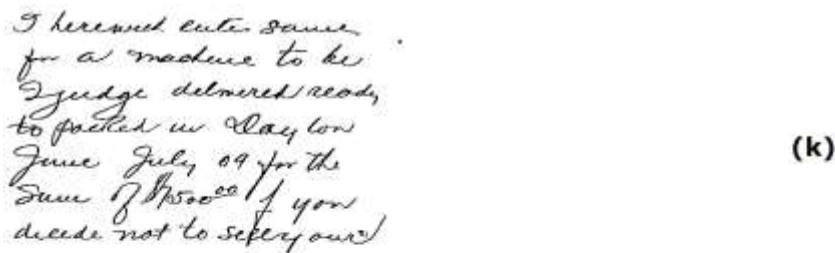 I herewith enter same
for a machine to be
I judge delivered ready
to packed in Dayton
June July 09 for the
Sum of $7500⁰⁰ If you
decide not to sell yours
(k)